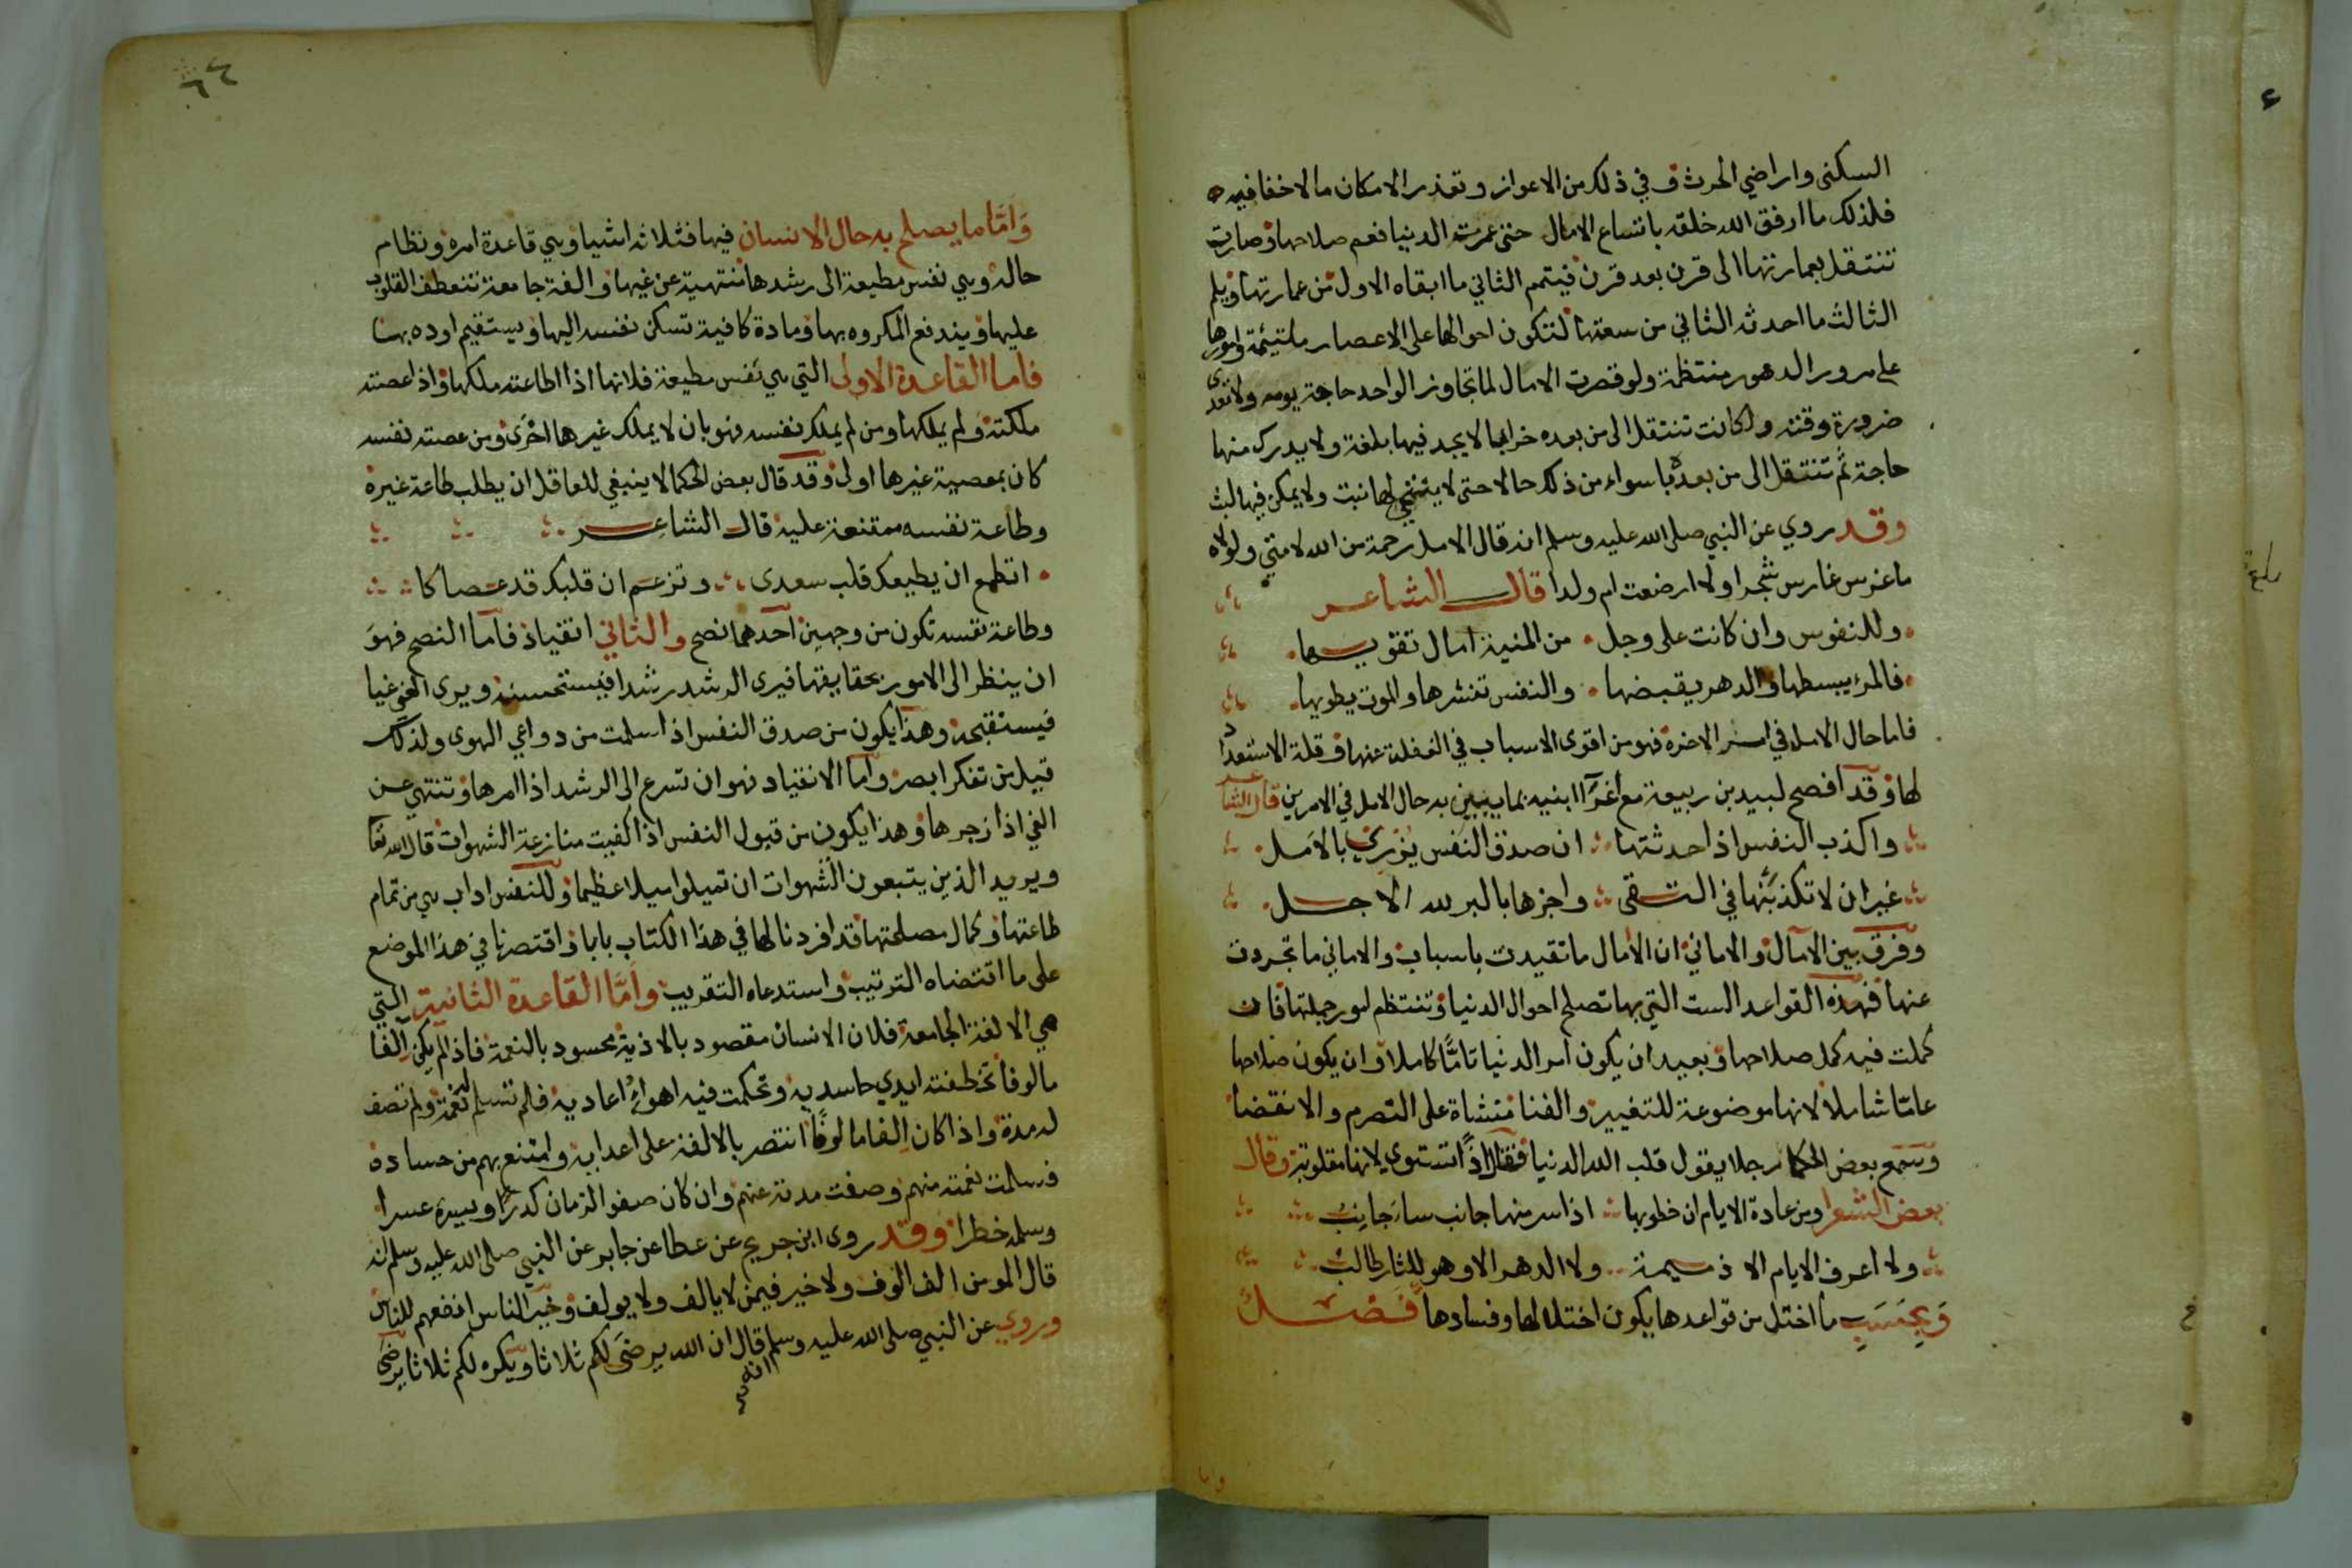 السكنى واراضي الحرث وفي ذلك من الاعواز وتعذر الامكان ما لا خفا فيه
فلذلك ما ارفق الله خلقه باتساع الامال حتى عمرت الدنيا فعم صلاحها وصارت
تنتقل بعمارتها الى قرن بعد قرن فيتمم الثاني ما ابقاه الاول من عمارتها ويلم
الثالث ما احدثه الثاني من سعتها لتكون احوالها على الاعصار ملتيئمة وامورها
على مرور الدهور منتظمة ولو قصرت الامال لما تجاوز الواحد حاجة يومه ولا تعدى
ضرورة وقته ولكانت تنتقل الى من بعده خرابا لا يجد فيها بلغة ولا يدرك منها
حاجة ثم تنتقل الى من بعده باسواء من ذلك حالا حتى لا ينبت ولا يمكن فيها لبث
وقد روي عن النبي صلى الله عليه وسلم انه قال الامل رحمة من الله لامتي ولولاه
ما غرس غارس شجرا ولا ارضعت ام ولدا قال الشاعر
وللنفوس وان كانت على وجل من المنية امال تقويها
فالمرء يبسطها والدهر يقبضها والنفس تنشرها والموت يطويها
فاما حال الامل في امر الاخرة فهو من اقوى الاسباب في الغفلة عنها وقلة الاستعداد
لها وقد افصح لبيد بن ربيعة مع اغرا ابنيه بما يبين به حال الامل في الامرين قال الشاعر
واكذب النفس اذا حدثتها ان صدق النفس يزري بالامل
غير ان لا تكذبنها في التقى واجزها بالبر لله الاجل
وفرق بين الآمال والاماني ان الأمال ما تقيدت باسباب والاماني ما تجردت
عنها فهذه القواعد الست التي بها تصلح احوال الدنيا وتنتظم امور جملتها فان
كملت فيه كمل صلاحها وبعيد ان يكون امر الدنيا تامًّا كاملا وان يكون صلاحها
عامّا شاملا لانها موضوعة للتغيير والفنا منشاة على التصرم والانقضا
وسمع بعض الحكما رجلا يقول قلب الله الدنيا فقال اذًا تستوي لانها مقلوبة وقال
بعض الشعرا ومن عادة الايام ان خطوبها اذا سر منها جانب ساء جانب
ولا اعرف الايام الا ذميمة ولا الدهر الا وهو للثار طالب
وبحسب ما اختل من قواعدها يكون اختلالها وفسادها فصل
واما
وامّا ما يصلح به حال الانسان فيها فثلاثه اشيا وهي قاعدة امره ونظام
حاله وهي نفس مطيعة الى رشدها منتهية عن غيها والفة جامعة تنعطف القلوب
عليها ويندفع المكروه بها ومادة كافية تسكن نفسه اليها ويستقيم اوده بها
فاما القاعدة الاولى التي هي نفس مطيعة فلانها اذا اطاعته ملكها واذا عصته
ملكته ولم يملكها ومن لم يملك نفسه فهو بان لا يملك غيرها احرى ومن عصته نفسه
كان بمعصية غيرها اولى وقد قال بعض الحكما لا ينبغي للعاقل ان يطلب طاعة غيره
وطاعة نفسه ممتنعة عليه قال الشاعر
اتطمع ان يطيعك قلب سعدى وتزعم ان قلبك قد عصاكا
وطاعة نفسه تكون من وجهين احدهما نصح والثاني انقياد فاما النصح فهو
ان ينظر الى الامور بحقايقها فيرى الرشد رشدا فيستحسنه ويرى الغي غيا
فيستقبحه وهذا يكون من صدق النفس اذا سلمت من دواعي الهوى ولذلك
قيل من تفكر ابصر واما الانقياد فهو ان تسرع الى الرشد اذا امرها وتنتهي عن
الغي اذا زجرها وهذا يكون من قبول النفس اذا كفيت منازعة الشهوات قال الله تعا
ويريد الذين يتبعون الشهوات ان تميلوا ميلا عظيما وللنفس اداب هي من تمام
طاعتها وكمال مصلحتها قد افردنا لها في هذا الكتاب بابا واقتصرنا في هذا الموضع
على ما اقتضاه الترتيب واستدعاه التقريب وامّا القاعدة الثانية التي
هي الالفة الجامعة فلان الانسان مقصود بالاذية محسود بالنعمة فاذا لم يكن الفا
مالوفا تخطفته ايدي حاسديه وتحكمت فيه اهواء اعاديه فلم تسلم له نعمة ولم تصف
له مدة واذا كان الفا مالوفًا انتصر بالالفة على اعدايه وامتنع بهم من حساده
فسلمت نعمته منهم وصفت مدته عنهم وان كان صفو الزمان كدرا ويسره عسرا
وسلمه خطرا وقد روى ابن جريج عن عطا عن جابر عن النبي صلى الله عليه وسلم انه
قال المومن الف الوف ولا خير فيمن لا يالف ولا يولف وخير الناس انفعهم للناس
وروي عن النبي صلى الله عليه وسلم انه قال ان الله يرضى لكم ثلاثا ويكره لكم ثلاثا يرضى